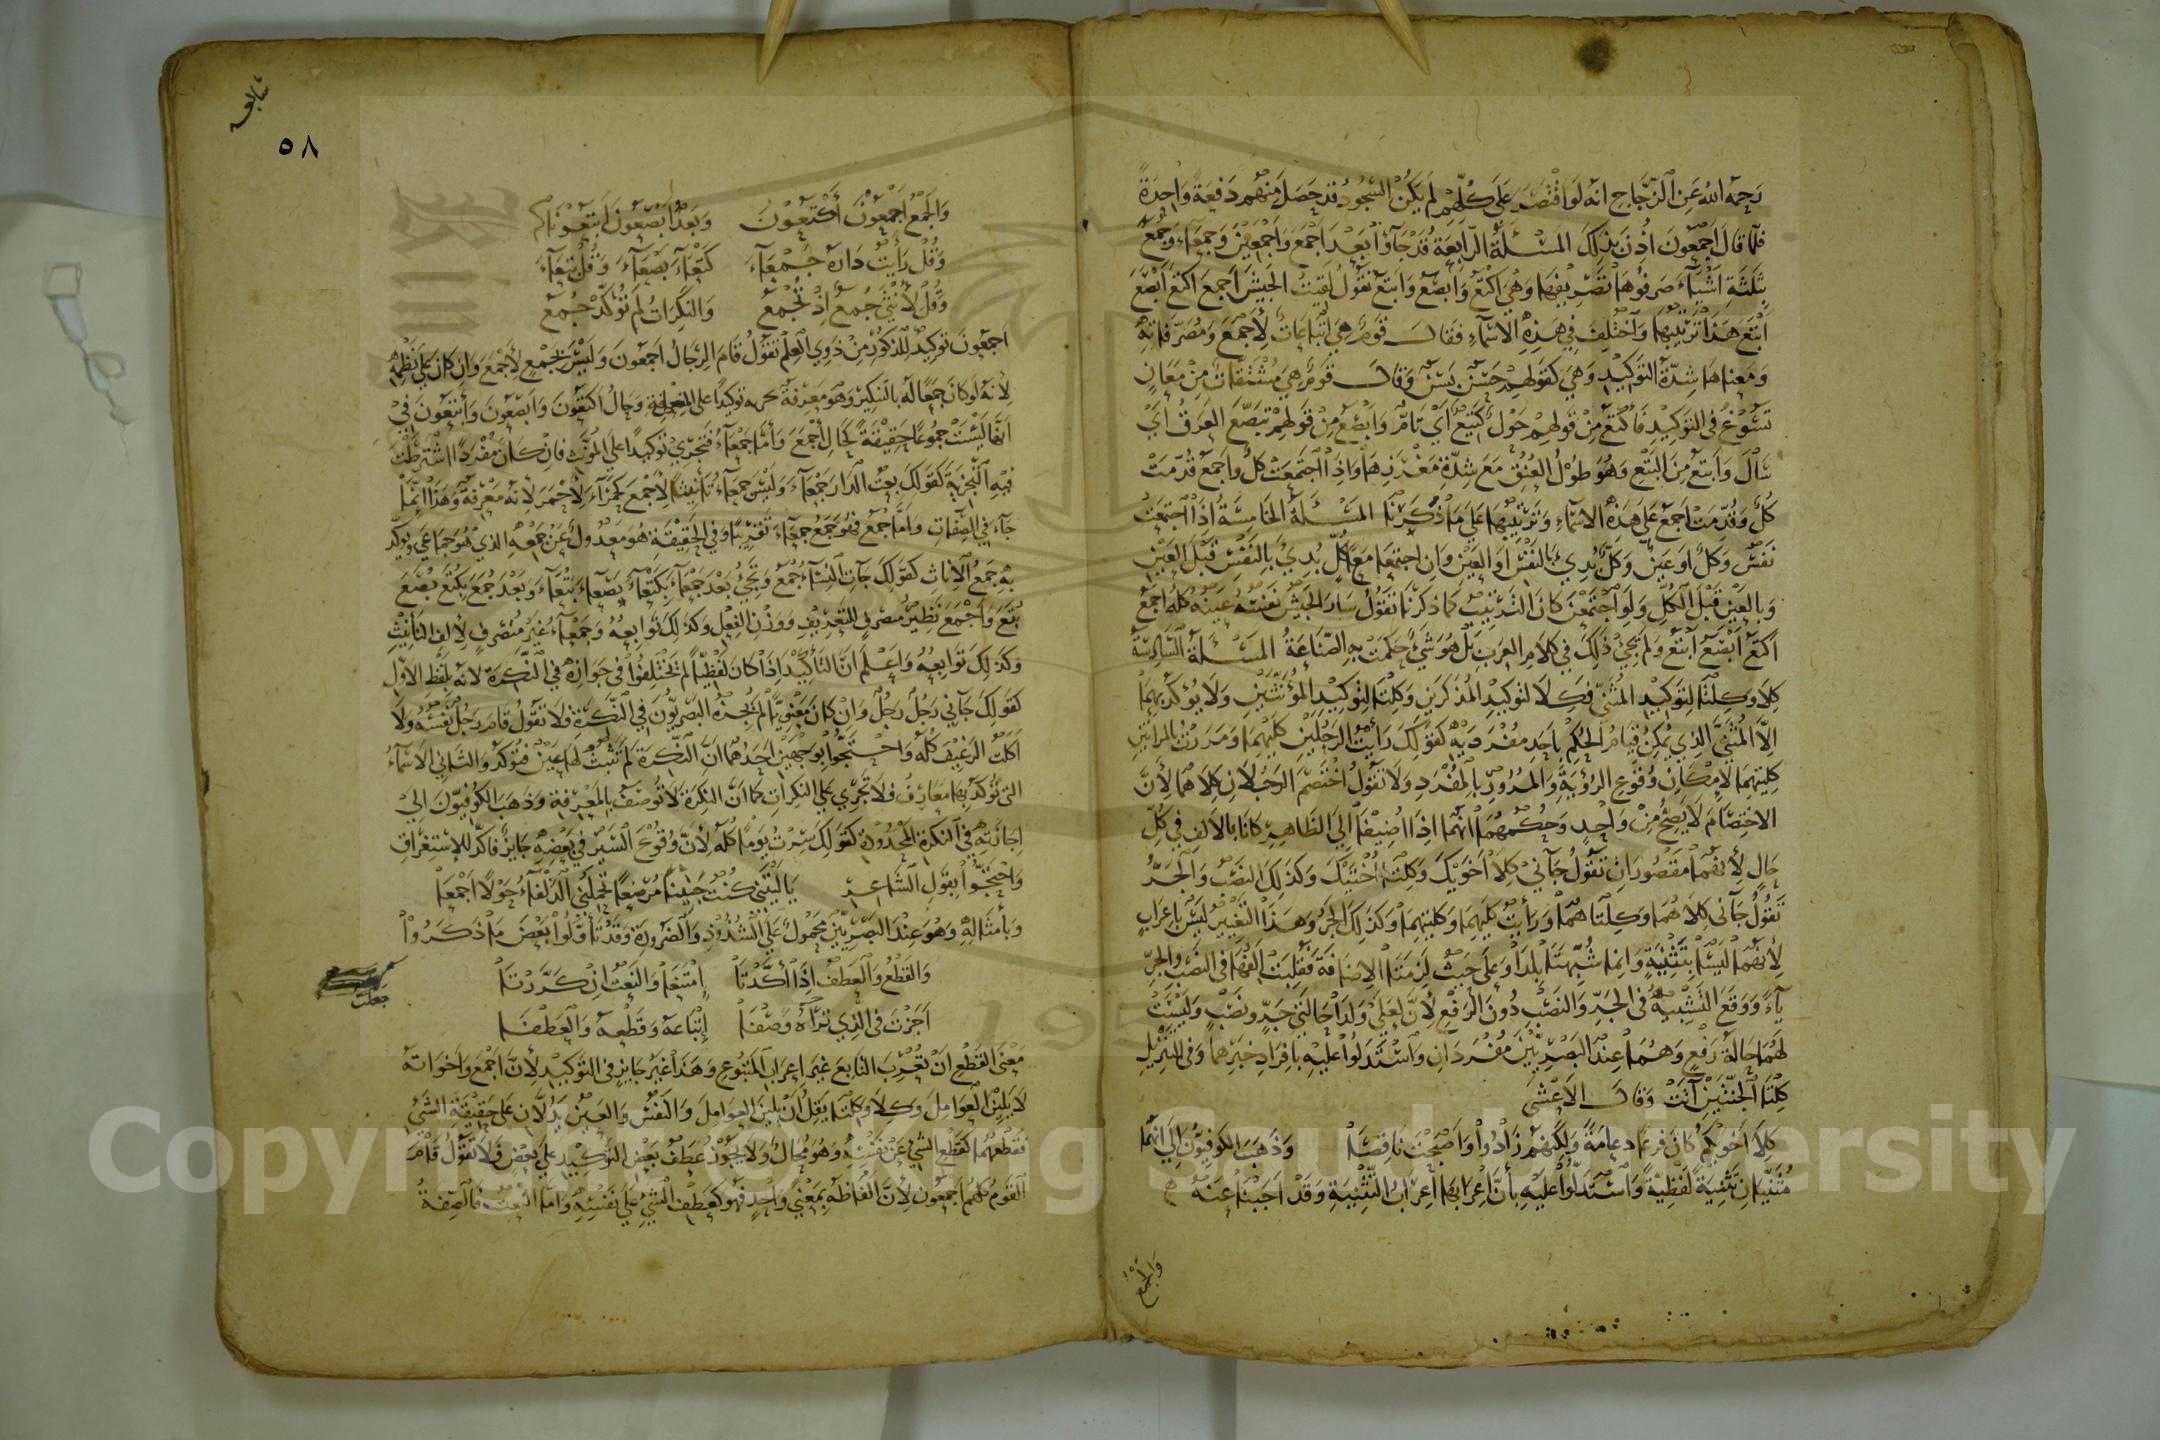 رَحِمَهُ اللهُ عَنِ الزَّجَّاجِ انه لَوِ اقْتَصَرَ عَلَى كُلِّهِمْ لَمْ يَكُنْ السُّجُودُ قد حَصَلَ مِنهُم دَفعَةً وَاحِدَةً
فلمَّا قالَ اَجْمَعُونَ اُذِنَ بِذلِكَ المسْئلَةُ الرَّابِعَةُ قَدْ جَاؤُا بَعْدَ اَجْمَعَ وَاَجْمَعِيْنَ وَجَمْعَاءَ وَجُمَعَ
بِثَلثَةِ اَشْيَاءَ صَرفُوهَا تَصْرِيْفَهَا وَهْيَ اكْتَع وَاَبصَع وَابتَع تقُولُ لقيتُ الجَيشَ اَجمعَ اكتَعَ اَبْصَعَ
اَبْتَعَ هَذَا تَرْتِيْبُهَا وَاخْتُلِفَ فِي هَذِهِ الاسْمَاءِ فقَالَ قَومٌ هِيَ اِتْبَاعَاتٌ لِأَجْمَعَ وَمُصَرَّفَاتِهِ
وَمَعناهَا شِدَّةُ التَّوْكِيْدِ وَهيَ كقَولِهِمْ حَسَنٌ بَسَنٌ وَقالَ قَومٌ هِيَ مُشْتَقَّاتٌ مِنْ مَعَانٍ
تَسُوْغُ فى التَوكِيْدِ فَاكْتَعُ مِنْ قَولِهِمْ حَوْلٌ كَتِيْعٌ اَيْ تَامٌّ وَاَبْصَعُ مِنْ قَولِهِمْ تَبَصَّعَ العَرَقُ اَيْ
سَالَ وَاَبتعُ مِنَ البَتَعِ وَهُوَ طُوْلُ العُنُقِ مَعَ شِدَّةِ مَغْرَزِهَا وَاِذَا اجْتَمَعَتْ كُلٌّ وَاَجمعُ قُدِّمَتْ
كُلٌّ وَقُدِّمَتْ اَجمعُ عَلَى هَذِهِ الاسْمَاءِ وَتَرْتِيْبُهَا عَلَى مَا ذَكَرْنَا المَسْئَلَةُ الخَامِسَةُ اِذَا اجْتَمَعَتْ
نَفسٌ وَكُلٌّ اَو عَيْنٌ وَكُلٌّ بُدِئَ بِالنَّفْسِ اَوِ العَيْنِ وَاِنِ اجتمعَا مَعَ كُلٍّ بُدِئَ بِالنَّفْسِ قَبْلَ العَيْنِ
وَبِالعَيْنِ قَبْلَ الكُلِّ وَلَوِ اجْتَمَعْنَ كانَ التَّرتِيبُ كمَا ذكَرنَا تقُوْلُ سَارَ الجَيْشُ نَفسُهُ عَيْنُهُ كُلُّهُ اَجمَعُ
اَكْتَعُ اَبْصَعُ اَبْتَعُ وَلَمْ يَجِئْ ذَلِكَ فِي كَلَامِ العَرَبِ بَلْ هُوَ شَيْءٌ حَكَمَتْ بِهِ الصِّنَاعَةُ المَسْئَلَةُ السَّادِسَةُ
كِلَا وَكِلْتَا لِتَوكِيْدِ المُثَنَّى فكِلَا لِتَوكِيْدِ المُذَكرَيْنِ وَكِلْتَا لِتَوْكِيْدِ المُؤَنَّثَيْنِ وَلَا يُؤَكَّدُ بِهِمَا
اِلَّا المُثَنَّى الَّذِي يُمْكِنُ قِيَامُ الحُكْمِ بِأَحَدِ مُفْرَدَيْهِ كَقَوْلِكَ رَأَيْتُ الرَّجُلَيْنِ كِلَيْهِمَا وَمَرَرْتُ بِالمَرأتَيْنِ
كِلْتَيْهِمَا لِإِمْكَانِ وُقُوعِ الرُّؤْيَةِ وَالمُرُوْرِ بِالمُفْرَدِ وَلَا تَقُولُ اخْتَصَمَ الرَّجُلَانِ كِلَاهُمَا لِأَنَّ
الاخْتِصَامَ لَا يَصِحُّ مِنْ وَاحِدٍ وَحُكْمُهُمَا اَنَّهُمَا اِذَا اُضِيْفَا اِلَى الظَّاهِرِ كَانَا بِالاَلِفِ فِي كُلِّ
حَالٍ لِأَنَّهُمَا مَقْصُوْرَانِ تَقُولُ جَآنِي كِلَا اَخَوَيْكَ وَكِلْتَا اُخْتَيْكَ وَكَذَلِكَ النَّصْبُ وَالجَرُّ
تَقُوْلُ جَآنى كِلَاهُمَا وَكِلْتَاهُمَا وَرَأَيْتُ كِلَيْهِمَا وَكِلْتَيْهِمَا وَكَذَلِكَ الجَرُّ وَهَذَا التَّغْيِيْرُ لَيْسَ بِإِعرَابٍ
لِأَنَّهُمَا لَيْسَا بِتَثْنِيَةٍ وَانَّمَا شُبِّهَتَا بِلَدَا وَعَلَى حَيثُ لَزِمَتَا الاِضَافَةَ فَقُلِبَتْ اَلِفُهَا فى النَّصْبِ وَالجَرِّ
يَآءً وَوَقَعَ التَّشْبِيْهُ فى الجَرِّ وَالنَصْبِ دُونَ الرَّفْعِ لِأَنَّ لِعَلَى وَلَدَا حَالَتَيْ جَرٍّ وَنَصْبٍ وَلَيْسَتْ
لَهُمَا حَالَةُ رَفْعٍ وَهُمَا عِنْدَ البَصْرِيِّيْنَ مُفْرَدَانِ وَاسْتَدَلُّوا عَليْهِ بِافِرَادِ خَبَرِهِمَا وَفى التَّنْزِيْلِ
كِلْتَا الجَنَّتَيْنِ آتَتْ وَقَالَ الاَعْشَى
كِلَا اَخَوَيْكُم كَانَ فَرعًا دِعَامَةً وَلَكِنَّهُمْ زَادُوْا وَاَصْبَحْتَ نَاقِصَا وَذَهَبَ الكُوفِيُّونَ اِلَى اَنَّهُمَا
مُثَنَّيَانِ تَثنِيَةً لَفْظِيَّةً وَاسْتَدَلُّوْا عَلَيْهِ بِأَنَّ اِعْرَابَهُمَا اِعْرَابُ التَّثْنِيَةِ وَقَدْ اَجَبْنَا عَنهُ
وَالجَمْعُ
٥٨
وَالجَمْعُ اَجْمَعُوْنَ اَكْتَعُوْنَ وَبَعدُ اَبْصَعُوْنَ اَبْتَعُوْنَا
وَقُلْ رَأَيْتُ دَارَهُ جَمْعَآءَ كَتْعَآءَ بَصْعَآءَ وَقُلْ بَتْعَآءَ
وَقُلْ لِأُنْثَى جُمَعٌ اِذْ تُجْمَعُ وَالنَكِرَاتُ لَمْ تُؤَكِّدْ جُمَعُ
اَجْمَعُونَ تَوكِيْدٌ لِلْمُذَكَّرِ مِنْ ذَوِي العِلْمِ تَقُوْلُ قَامَ الرِّجَالُ اَجْمَعُونَ وَلَيْسَ بِجَمْعٍ لِأَجْمَعَ وَاِنْ كَانَ عَلَى نَظْمِهِ
لِأَنَّهُ لَو كَانَ جَمْعًا لَهُ بِالتَنكِيْرِ وَهُوَ مَعْرِفَةٌ توكيدًا على المعرفة وَحَالُ اَكتَعُوْنَ وَاَبصَعُونَ وَاَبتَعُونَ فِيْ
اَنَّهَا لَيْسَتْ جُمُوعًا حَقِيْقَةً كَحَالِ اَجْمَعَ وَاَمَّا جَمْعَآءُ فَتَجْرِيْ تَوكِيْدًا عَلَى المُؤَنَّثِ فَاِنْ كَانَ مُفْرَدًا اشْتَرَطْتَ
فِيْهِ التَّجْزِيَةَ كَقَولِكَ بِعْتُ الدَّارَ جَمْعَآءَ وَلَيْسَ جَمْعَآءُ تَأنِيْثًا لِأَجْمَعَ كَحَمْرَآءَ لِأَحْمَرَ لِأَنَّهُ مَعْرِفَةٌ وَهَذَا اِنَّمَا
جَآءَ فِي الصِّفَاتِ وَاَمَّا جُمَعُ فَهُوَ جَمعُ جَمْعَآءَ تَقْرِيْبًا وَفِى الحَقِيْقَةِ هُوَ مَعْدُولٌ عَنْ جَمْعِهِ الَّذي هُوَ جَمَاعَى وَيُؤكَّدُ
بِهِ جَمْعُ الاِنَاثِ كقَولِكَ جَآتِ النِّسَآءُ جُمَعُ وَتَجِيُ بَعْدَ جَمْعَآءَ بِكَتْعَآءَ بَصْعَآءَ بَتْعَآءَ وَبَعْدَ جُمَعَ بِكُتَعَ بُصَعَ
بُتَعَ وَاَجْمَعُ غَيْرُ مُنصَرِفٍ لِلتَّعْرِيْفِ وَوَزْنِ الفِعْلِ وَكَذَلِكَ تَوَابِعُهُ وَجَمْعَآءُ غَيْرُ مُنْصَرِفٍ لِأَلِفِ التَأنِيْثِ
وَكَذَلِكَ تَوَابِعُهُ وَاعْلَمْ اَنَّ التَّأكِيْدَ اِذَا كَانَ لَفْظِيًّا لَمْ يَخْتَلِفُوْا فى جَوَازِهِ فِي النَّكِرَةِ لِأَنَّهُ بِلَفْظِ الاَوَّلِ
كَقَولِكَ جَآنِي رَجُلٌ رَجُلٌ وَاِنْ كَانَ مَعْنَوِيًّا لَمْ يُجِزْهُ البَصْرِيُّونَ فِي النَّكِرَةِ فَلَا تَقُولُ قَامَ رَجُلٌ نَفْسُهُ وَلَا
اَكَلْتُ رَغِيْفًا كُلَّهُ وَاحْتَجُّوْا بِوَجْهَيْنِ اَحَدُهُمَا اَنَّ النَّكِرَةَ لَمْ تَثْبُتْ لَهَا عَيْنٌ فَتُؤَكَّدُ وَالثَّانِي الاَسْمَآءُ
التي تُؤَكَّدُ بِهَا مَعَارِفُ فَلَا تَجْرِي عَلَى النَّكِرَاتِ كَمَا اَنَّ النَّكِرَةَ لَا تُوصَفُ بِالمَعْرِفَةِ وَذَهَبَ الكُوفِيُّوْنَ اِلَىْ
اِجَازَتِهِ فى النَّكِرَةِ المَحْدُوْدَةِ كَقَولِكَ سِرْتُ يَوْمًا كُلَّهُ لِأَنَّ وُقُوْعَ السَّيْرِ فِي بَعْضِهِ جَائِزٌ فَأُكِّدَ لِلاِسْتِغْرَاقِ
وَاحْتَجُّوْا بِقَولِ الشَّاعِرِ يَا لَيْتَنِي كُنْتُ صَبِيًّا مُرْضَعًا تَحْمِلُنِي الذَّلْفَآءُ حَوْلًا اَجْمَعَا
وَبِأَمْثَالِهِ وَهُوَ عِنْدَ البَصْرِيِّيْنَ مَحْمُوْلٌ عَلَى الشُّذُوْذِ وَالضَّرُورَةِ وَقَدْ تَأَوَّلُوْا بَعْضَ مَا ذَكَرُوْا
وَالقَطْعُ وَالعَطْفُ اِذَا اَكَّدْتَا اِمْتَنَعَا وَالنَعْتُ اِنْ كَرَّرْتَا
جَعلتَ
اَجَزْتَ فى الَّذِي تَرَاهُ وَصْفَا اِتْبَاعَهُ وَقَطْعَهُ وَالعَطْفَا
مَعْنَى القَطْعِ اَنْ تُعْرِبَ التَّابِعَ غَيْرَ اِعرَابِ المَتْبُوعِ وَهَذَا غَيْرُ جَايِزٍ فى التَّوكِيْدِ لِأَنَّ اَجْمَعَ وَاَخَوَاتَهُ
لَا يَلِيْنَ العَوَامِلَ وَكِلَا وَكِلْتَا يَقِلُّ اَنْ يَلِيَنَ العَوَامِلَ وَالنَّفْسُ وَالعَيْنُ يَدُلَّانِ عَلَى حَقِيْقَةِ الشَّيْءِ
فَقَطْعُهُمَا كَقَطْعِ الشَيْءِ عَنْ نَفْسِهِ وَهُوَ مُحَالٌ وَلَا يَجُوْزُ عَطْفُ بَعْضِ التَّوكِيْدِ عَلَى بَعْضٍ فَلَا تَقُولُ قَامَ
القَومُ كُلُّهُمْ وَاَجمَعُونَ لِأَنَّ اَلفَاظَهُ بِمَعْنًى وَاحِدٍ فَهُوَ كَعَطْفِ الشَيْءِ عَلَى نَفْسِهِ وَاَمَّا النَّعْتُ فَالصِّفَةُ
Copyright © King Saud University